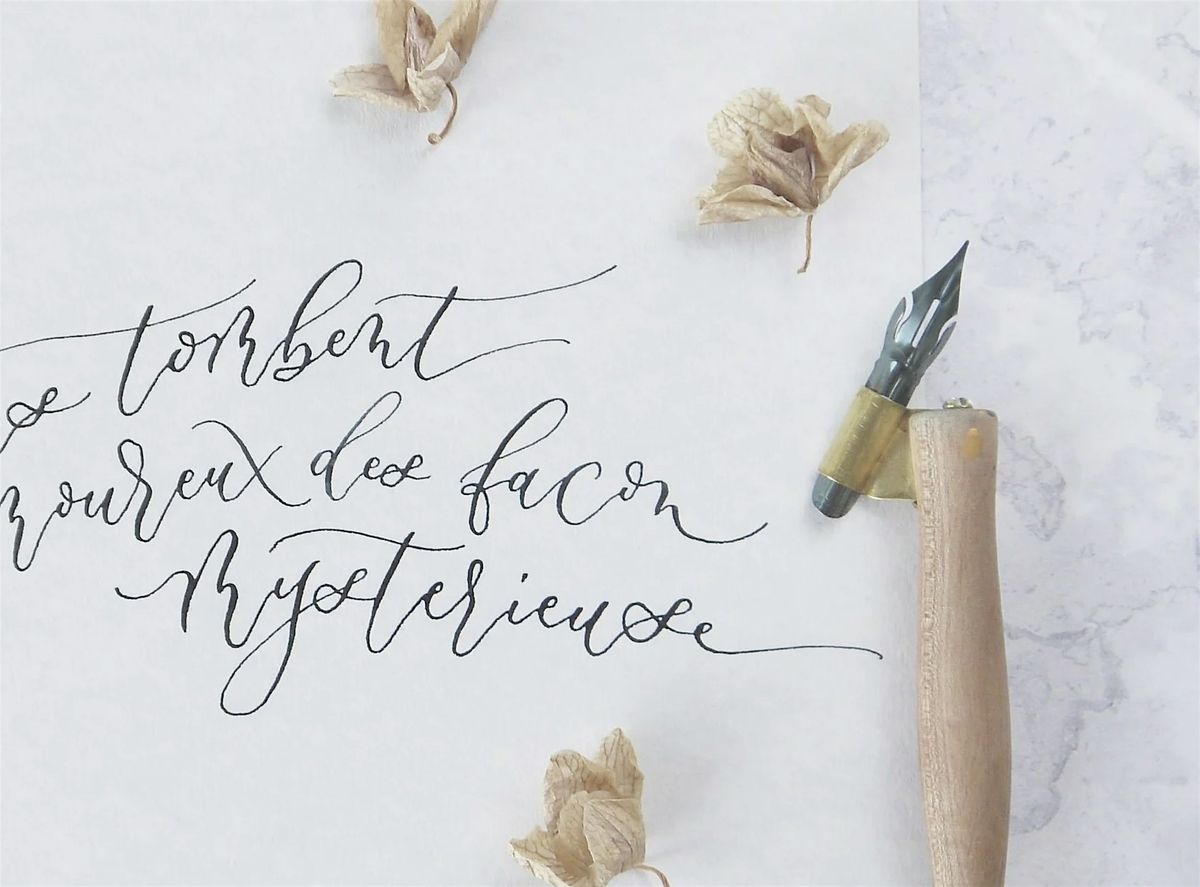 s tombent
moureux des facon
mysterieuse